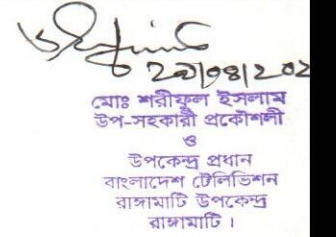 মোঃ শরীফুল ইসলাম
উপ-সহকারী প্রকৌশলী
ও
উপকেন্দ্র প্রধান
বাংলাদেশ টেলিভিশন
রাঙ্গামাটি উপকেন্দ্র
রাঙ্গামাটি।